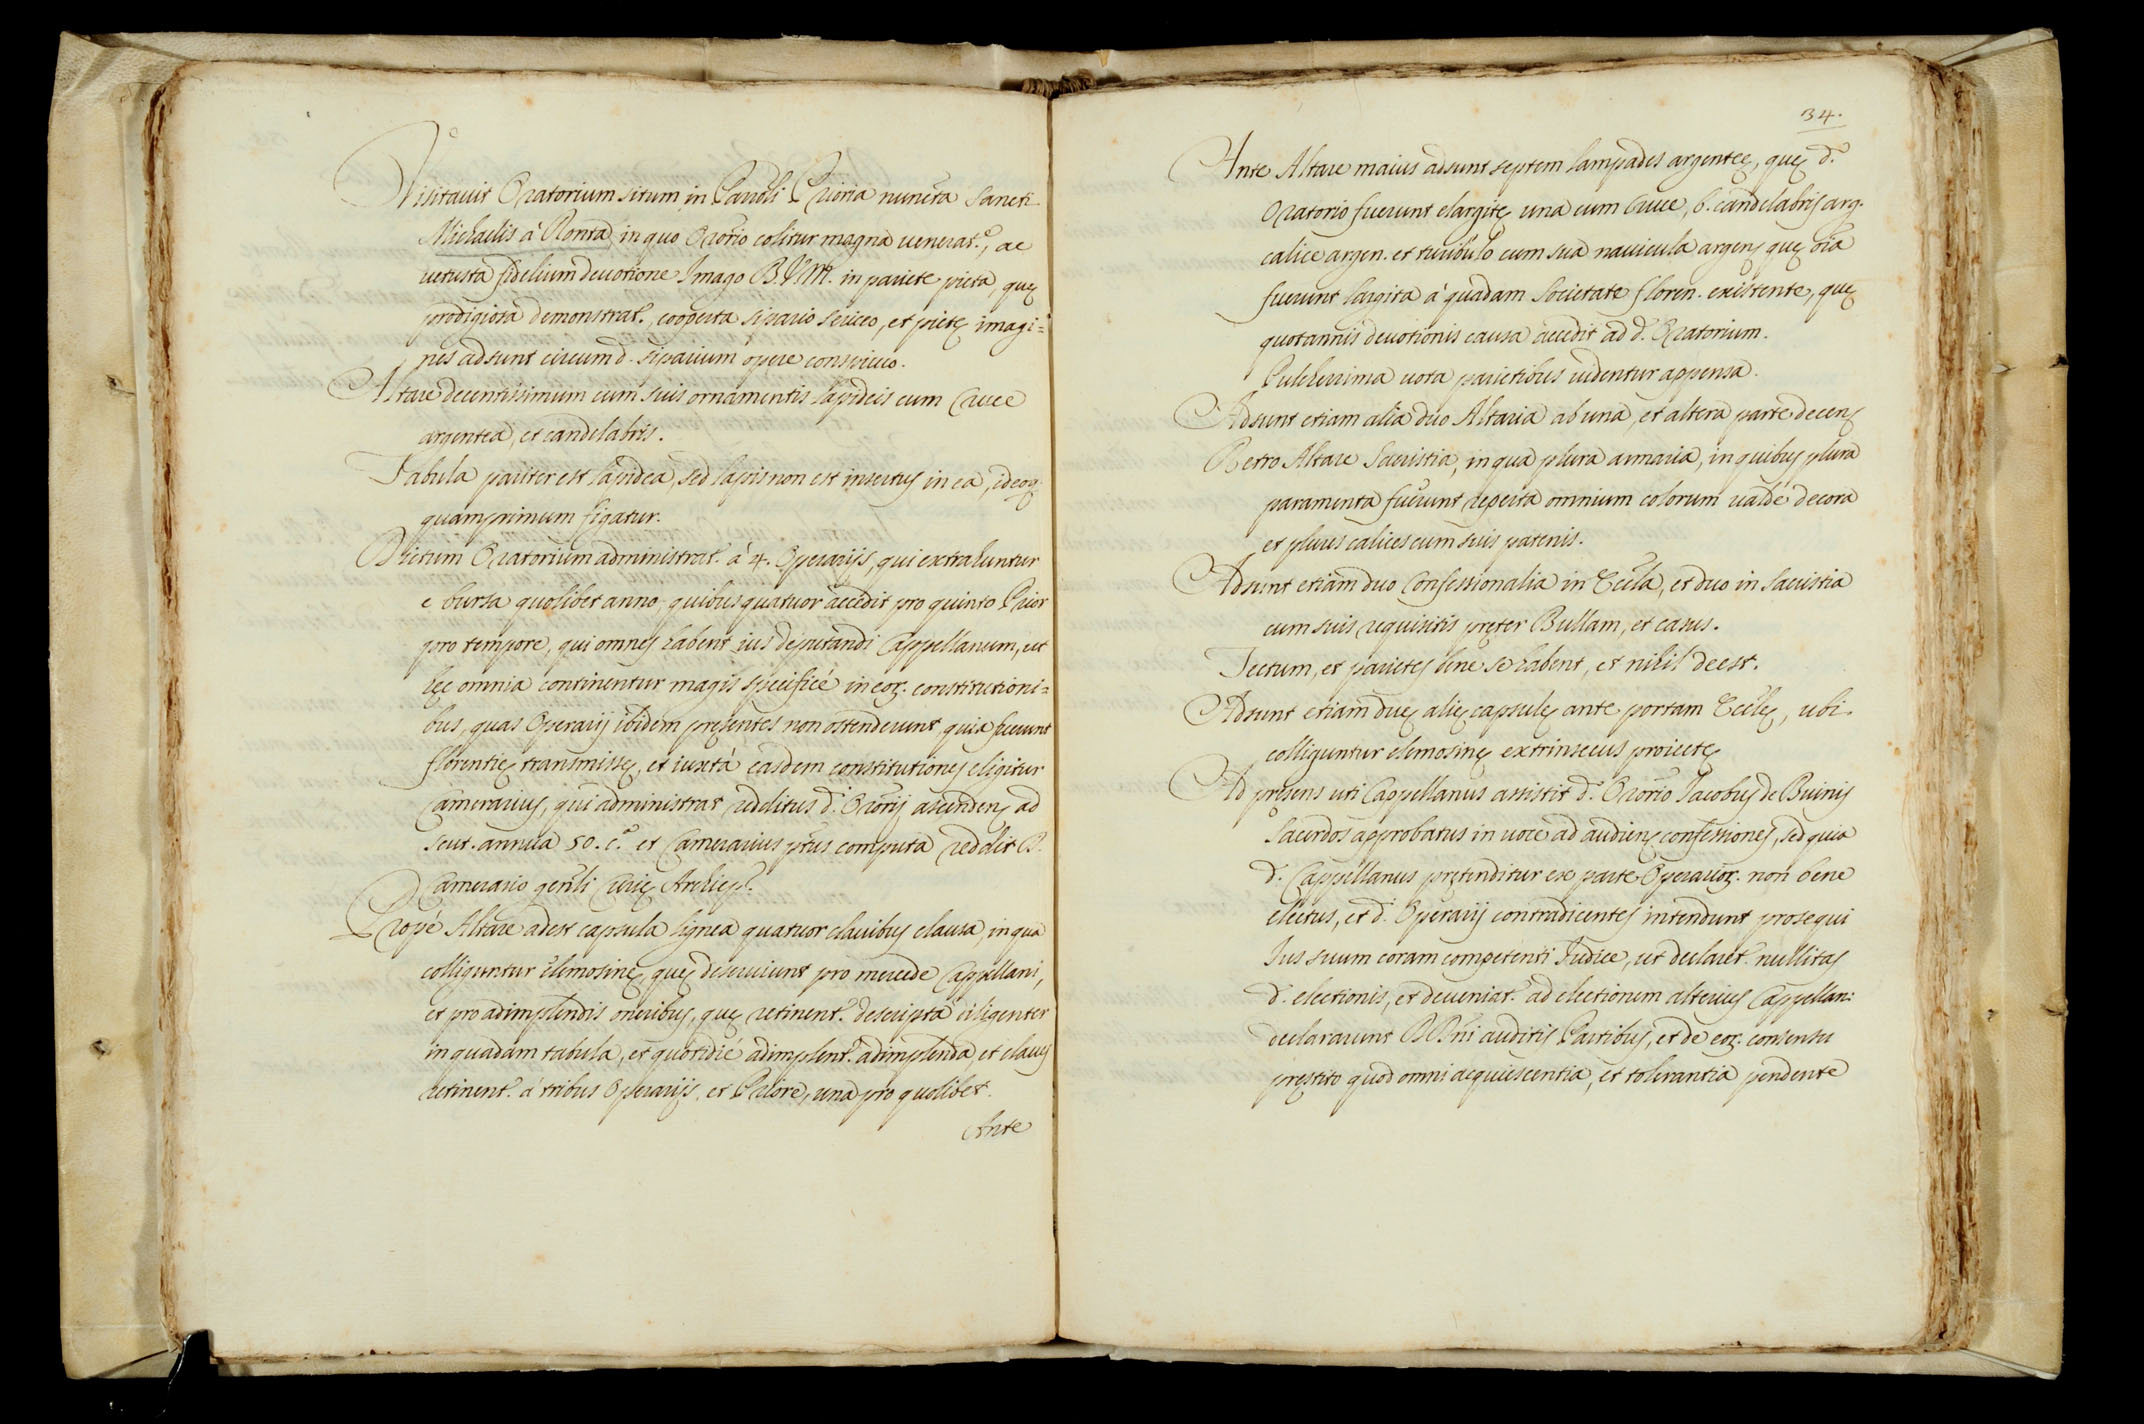 Visitavit Oratorium situm in Paroli Prioria nuncta Sancti
Michaelis à Ronta, in quo Orõrio colitur magna venerat.e, ac
vetusta fidelium devotione Imago B.V.M. in pariete picta, quę
prodigiosa demonstrat., cooperta sipario sericeo, et pictę imagi=
nes adsunt circum d. siparium opere conspicuo.
Altare decentissimum cum suis ornamentis lapideis cum Cruce
argentea, et candelabris.
Tabula pariter est lapidea, sed lapis non est insertus in ea, ideoq.
quamprimum figatur.
Dictum Oratorium administrat. à 4. Operarijs, qui extrahuntur
e bursa quolibet anno, quibus quatuor accedit pro quinto Prior
pro tempore, qui omnes habent ius deputandi Cappellanum, ut
hęc omnia continentur magis specificè in eor. constitutioni=
bus, quas Operarij ibidem pręsentes non ostenderunt, quia fuerunt
florentię transmissę, et iuxtà easdem constitutiones eligitur
Camerarius, qui administrat redditus d. Orõrij ascenden. ad
scut. annua 50. c.a et Camerarius ptus computa reddit R.
D Camerario gen̄li Curię Archiep.
Propè Altare adest capsula lignea quatuor clavibus clausa, in qua
colliguntur elemosinę, quę deserviunt pro mercede Cappellani,
et pro adimplendis oneribus, quę retinent. descripta diligenter
in quadam tabula, et quotidiè adimplent. adimplenda et claves
retinent. à tribus Operarijs, et Priore, una pro quolibet.
Ante
34.
Ante Altare maius adsunt septem lampades argenteę, quę d.o
Oratorio fuerunt elargitę una cum Cruce, 6. candelabris arg.
calice argen. et turibulo cum sua navicula argen. quę oĩa
fuerunt largita à quadam Societate floren. existente, quę
quotannis devotionis causa accedit ad d. Oratorium.
Pulcherrima vota parietibus videntur appensa.
Adsunt etiam alia duo Altaria ab una, et altera parte decen.
Retro Altare Sacristia, in qua plura armaria, in quibus plura
paramenta fuerunt reperta omnium colorum valdè decora
et plures calices cum suis patenis.
Adsunt etiam duo Confessionalia in Eccl̃a, et duo in Sacristia
cum suis requisitis pręter Bullam, et casus.
Tectum, et parietes bene se habent, et nihil deest.
Adsunt etiam duę alię capsulę ante portam Eccl̃ę, ubi
colliguntur elemosinę extrinsecus proiectę
Ad pręsens uti Cappellanus assistit d.o Orõrio Jacobus de Buinis
Sacerdos approbatus in voce ad audien. confessiones, sed quia
d. Cappellanus prętenditur ex parte Operarior. non bene
electus, et d. Operarij contradicentes intendunt prosequi
Ius suum coram competenti Iudice, ut declaret. nullitas
d. electionis, et deveniat. ad electionem alterius Cappellan:
declararunt RR.D̃ni auditis Partibus, et de eor. consensu
pręstito quod omni acquiescentia, et tolerantia pendente